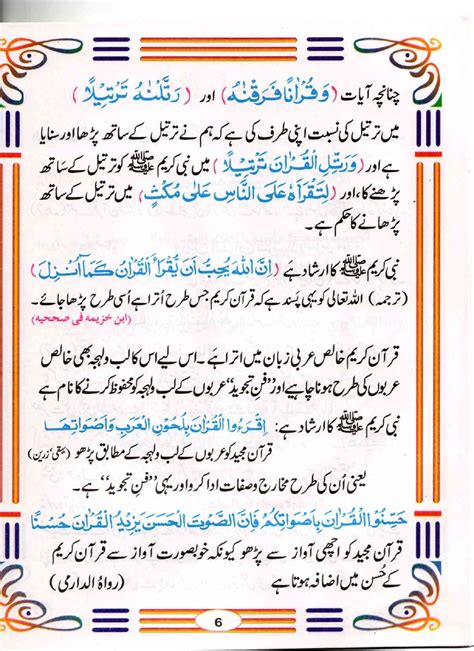 چنانچہ آیات (وَقُرْاٰنًا فَرَقْنٰهُ) اور (رَتَّلْنٰهُ تَرْتِیْلًا)
میں ترتیل کی نسبت اپنی طرف کی ہے کہ ہم نے ترتیل کے ساتھ پڑھا اور سنایا
ہے اور (وَرَتِّلِ الْقُرْاٰنَ تَرْتِیْلًا) میں نبی کریم ﷺ کو ترتیل کے ساتھ
پڑھنے کا، اور (لِتَقْرَاَهٗ عَلَی النَّاسِ عَلٰی مُکْثٍ) میں ترتیل کے ساتھ
پڑھانے کا حکم ہے۔
نبی کریم ﷺ کا ارشاد ہے (اِنَّ اللّٰهَ یُحِبُّ اَنْ یُّقْرَأَ الْقُرْاٰنُ کَمَآ اُنْزِلَ)
(ترجمہ) اللہ تعالی کو یہی پسند ہے کہ قرآن کریم جس طرح اُترا ہے اُسی طرح پڑھا جائے۔
(ابن خزیمہ فی صحیحیہ)
قرآن کریم خالص عربی زبان میں اترا ہے۔ اس لیے اس کا لب ولہجہ بھی خالص
عربوں کی طرح ہونا چاہیے اور ”فنِ تجوید“ عربوں کے لب ولہجہ کو محفوظ کرنے کا نام ہے
نبی کریم ﷺ کا ارشاد ہے: اِقْرَءُوا الْقُرْاٰنَ بِلُحُوْنِ الْعَرَبِ وَاَصْوَاتِهَا
قرآن مجید کو عربوں کے لب ولہجہ کے مطابق پڑھو (بیہقی، رزین)
یعنی اُن کی طرح مخارج وصفات ادا کرو اور یہی ”فنِ تجوید“ ہے۔
حَسِّنُوا الْقُرْاٰنَ بِاَصْوَاتِکُمْ فَاِنَّ الصَّوْتَ الْحَسَنَ یَزِیْدُ الْقُرْاٰنَ حُسْنًا
قرآن مجید کو اچھی آواز سے پڑھو کیونکہ خوبصورت آواز سے قرآن کریم
کے حُسن میں اضافہ ہوتا ہے (رواہ الدارمی)
6